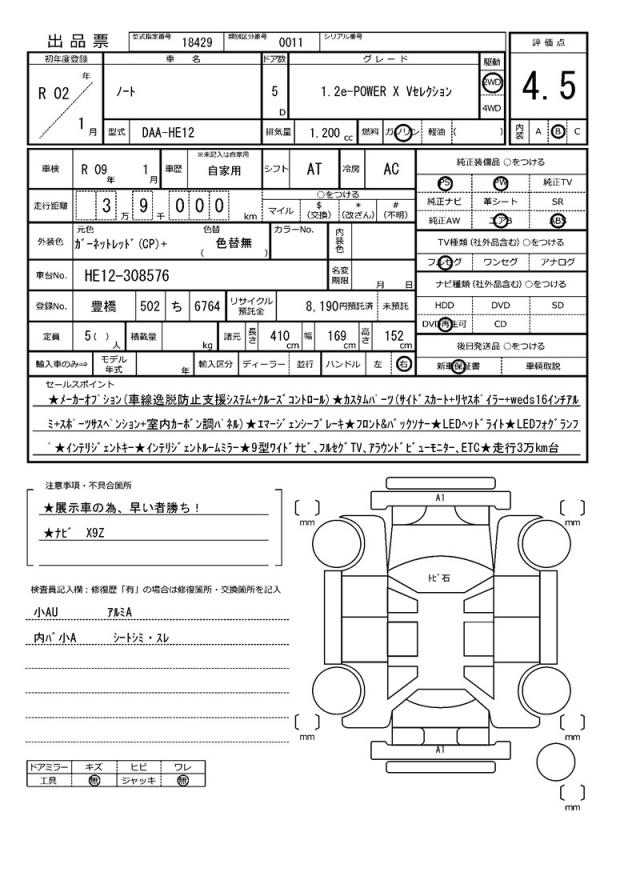 出品票 型式指定番号 18429 類別区分番号 0011 シリアル番号
評価点
初年度登録 車名 ドア数 グレード 駆動
R 02 年 ノート 5 D 1.2e-POWER X Vセレクション 2WD 4.5
4WD
1 月 型式 DAA-HE12 排気量 1.200 cc 燃料 ガソリン 軽油 ( ) 内装 A B C
車検 R 09 年 1 月 車歴 ※未記入は自家用 自家用 シフト AT 冷房 AC 純正装備品 ○をつける
PS PW 純正TV
走行距離 3 万 9 千 0 0 0 km ○をつける 純正ナビ 革シート SR
マイル $ (交換) * (改ざん) # (不明) 純正AW エアB ABS
外装色 元色 ガーネットレッド(CP)+ 色替 ( 色替無 ) カラーNo. 内装色 TV種類(社外品含む)○をつける
フルセグ ワンセグ アナログ
車台No. HE12-308576 名変期限 月 日 ナビ種類(社外品含む)○をつける
登録No. 豊橋 502 ち 6764 リサイクル預託金 8,190円預託済 未預託 HDD DVD SD
DVD再生可 CD
定員 5( ) 人 積載量 kg 諸元 長さ 410 cm 幅 169 cm 高さ 152 cm 後日発送品 ○をつける
輸入車のみ⇒ モデル年式 年 輸入区分 ディーラー 並行 ハンドル 左 右 新車保証書 車輌取説
セールスポイント
★メーカーオプション(車線逸脱防止支援システム+クルーズコントロール)★カスタムパーツ(サイドスカート+リヤスポイラー+weds16インチアル
ミ+スポーツサスペンション+室内カーボン調パネル)★エマージェンシーブレーキ★フロント&バックソナー★LEDヘッドライト★LEDフォグランプ
★インテリジェントキー★インテリジェントルームミラー★9型ワイドナビ、フルセグTV、アラウンドビューモニター、ETC★走行3万km台
注意事項・不具合箇所
★展示車の為、早い者勝ち！
★ナビ X9Z
検査員記入欄：修復歴「有」の場合は修復箇所・交換箇所を記入
小AU アルミA
内バ小A シートシミ・スレ
ドアミラー キズ ヒビ ワレ
工具 無 ジャッキ 無
A1
mm mm
トビ石
mm mm
A1
mm